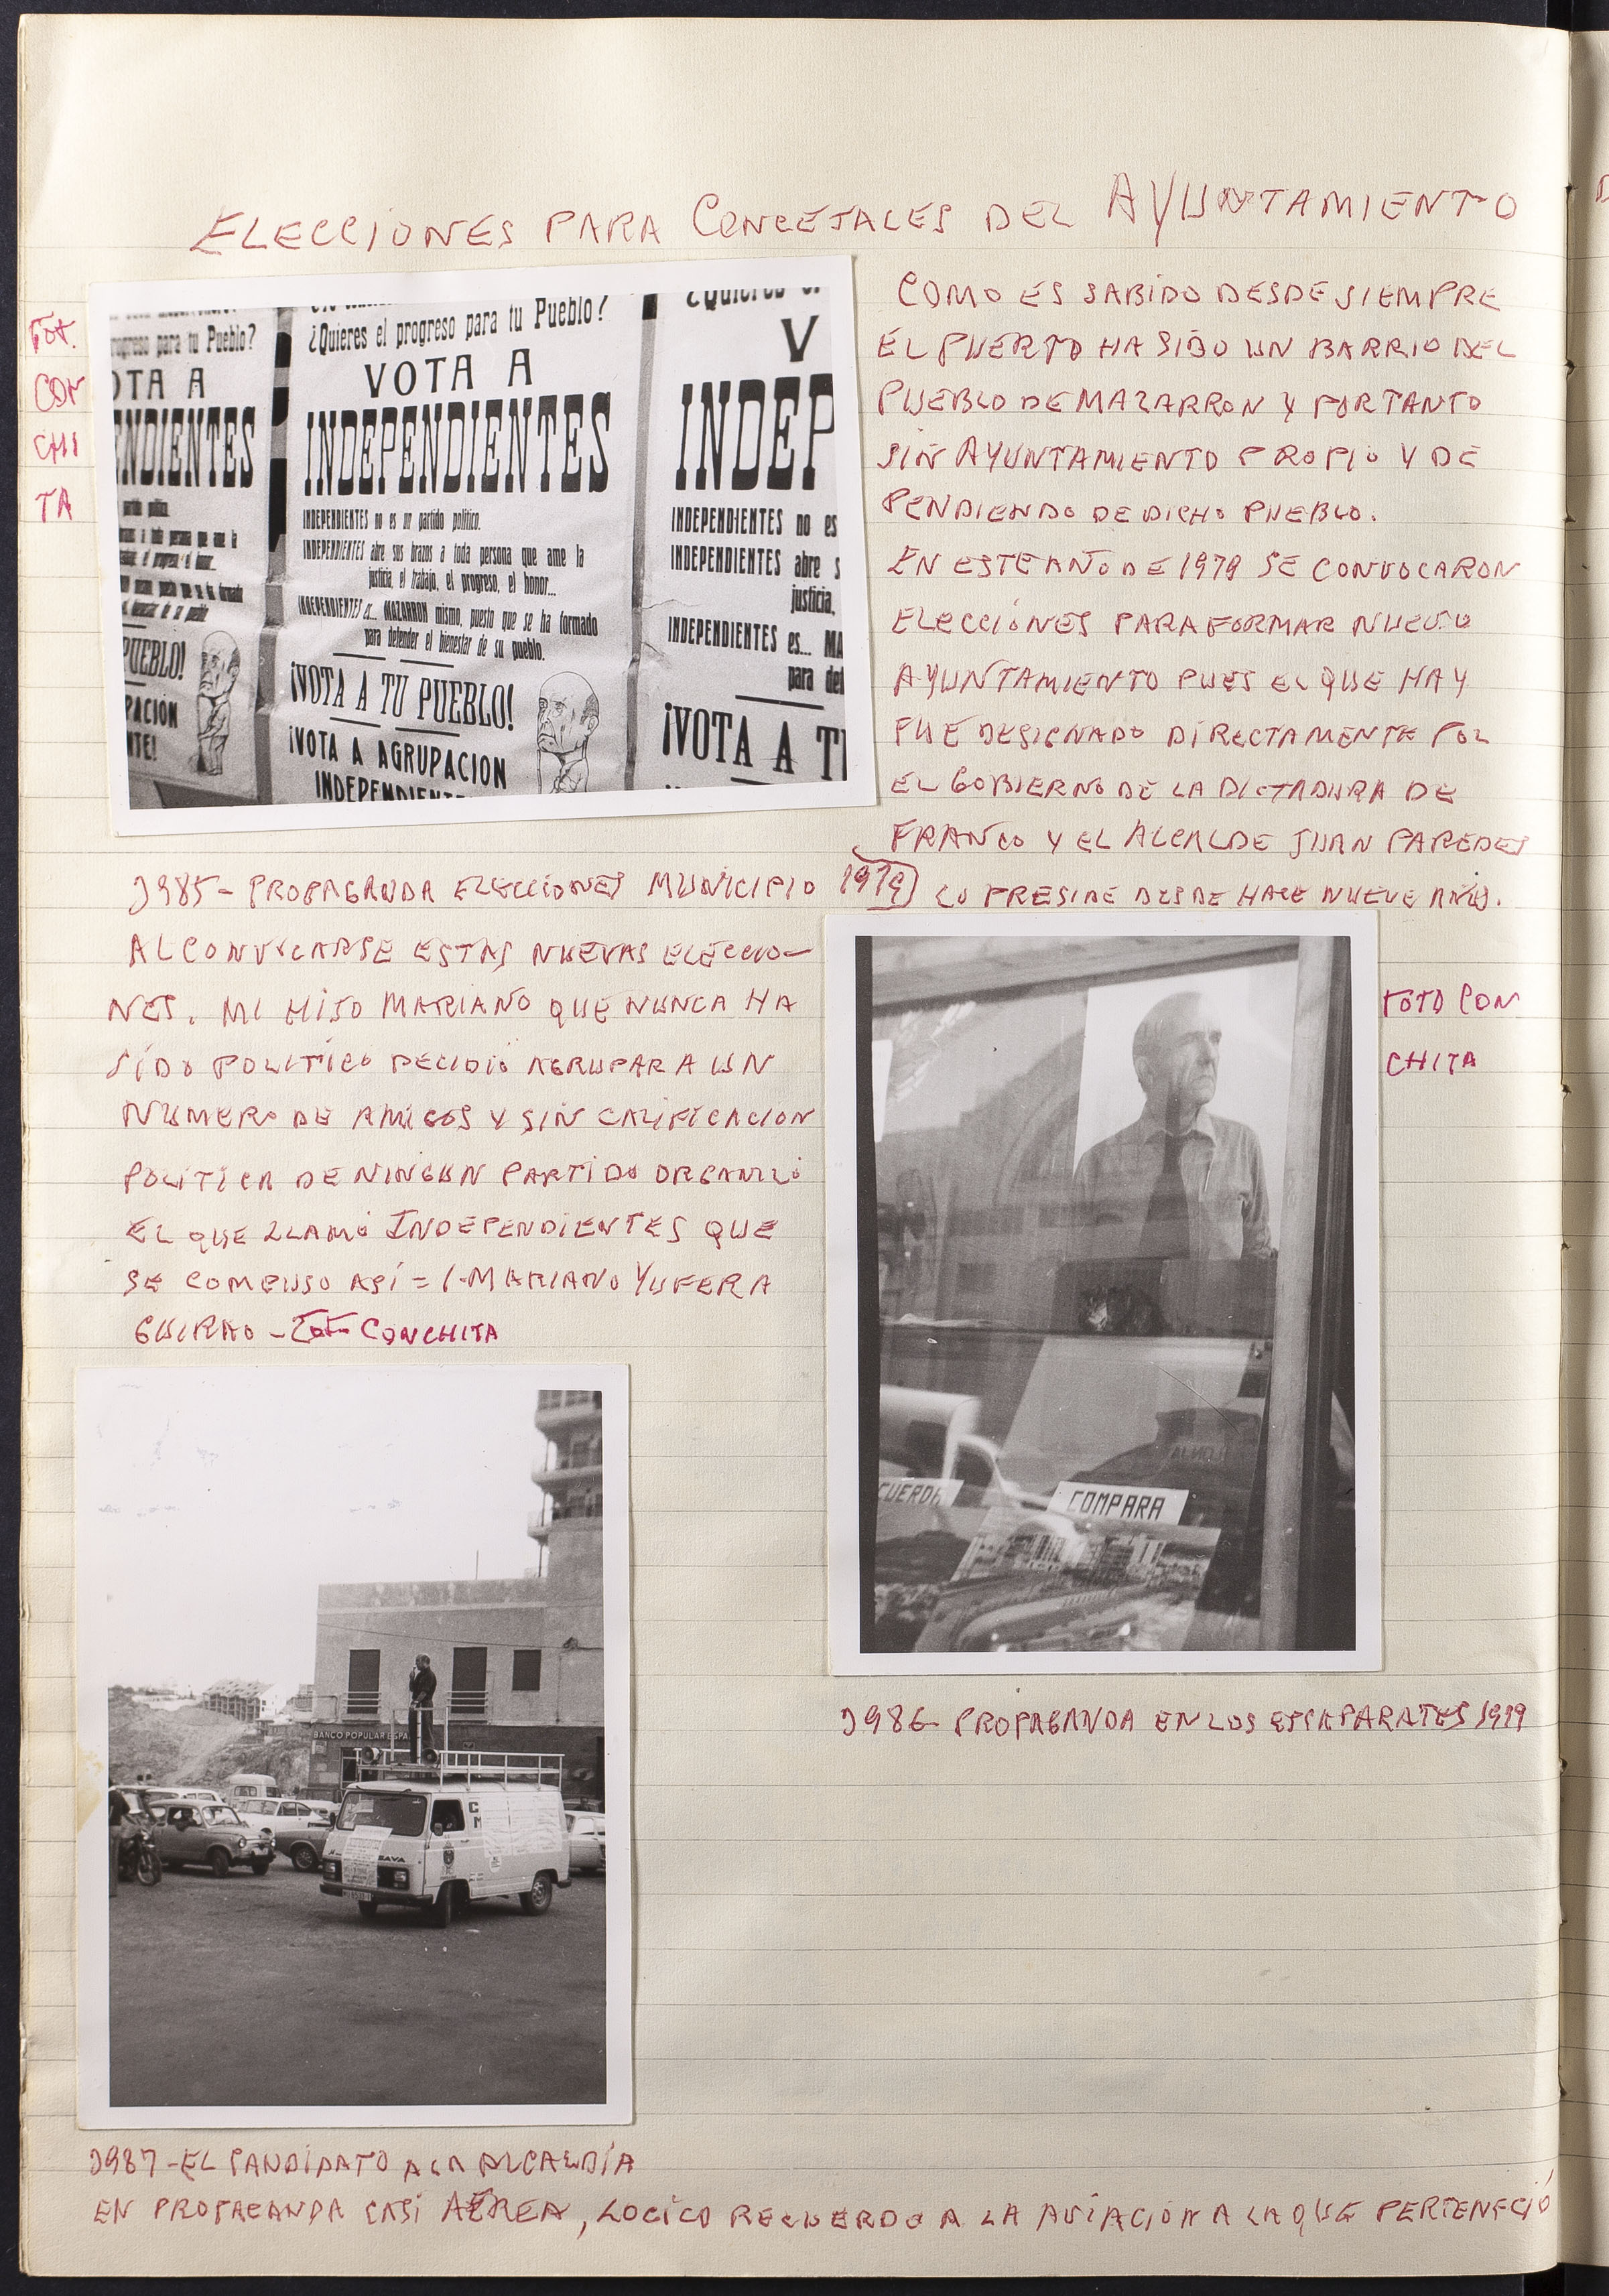 ELECCIONES PARA CONCEJALES DEL AYUNTAMIENTO
FOT.
CON
CHI
TA
rogreso para tu Pueblo?
OTA A
ENDIENTES
PUEBLO!
PACION
NTE!
¿Quieres el progreso para tu Pueblo?
VOTA A
INDEPENDIENTES
INDEPENDIENTES no es un partido político.
INDEPENDIENTES abre sus brazos a toda persona que ame la
justicia, el trabajo, el progreso, el honor...
INDEPENDIENTES es... MAZARRON mismo, puesto que se ha formado
para defender el bienestar de su pueblo.
¡VOTA A TU PUEBLO!
¡VOTA A AGRUPACION
INDEPENDIENT
¿Quieres el
V
INDEP
INDEPENDIENTES no es
INDEPENDIENTES abre s
justicia,
INDEPENDIENTES es... MA
para def
¡VOTA A T
COMO ES SABIDO DESDE SIEMPRE
EL PUERTO HA SIDO UN BARRIO DEL
PUEBLO DE MAZARRON Y PORTANTO
SIN AYUNTAMIENTO PROPIO Y DE
PENDIENDO DE DICHO PUEBLO.
EN ESTE AÑO DE 1979 SE CONVOCARON
ELECCIONES PARA FORMAR NUEVO
AYUNTAMIENTO PUES EL QUE HAY
FUE DESIGNADO DIRECTAMENTE POR
EL GOBIERNO DE LA DICTADURA DE
FRANCO Y EL ALCALDE JUAN PAREDES
LO PRESIDE DESDE HACE NUEVE AÑOS.
1985- PROPAGANDA ELECCIONES MUNICIPIO 1979
AL CONVOCARSE ESTAS NUEVAS ELECCIO-
NES. MI HIJO MARIANO QUE NUNCA HA
SIDO POLITICO DECIDIO AGRUPAR A UN
NUMERO DE AMIGOS Y SIN CALIFICACION
POLITICA DE NINGUN PARTIDO ORGANIZO
EL QUE LLAMO INDEPENDIENTES QUE
SE COMPUSO ASI = 1-MARIANO YUFERA
GUIRAO - FOT CONCHITA
FOTO CON
CHITA
CUERDA
COMPARA
1986- PROPAGANDA EN LOS ESCAPARATES 1979
BANCO POPULAR ESPA
SAVA
1987-EL CANDIDATO A LA ALCALDÍA
EN PROPAGANDA CASI AÉREA, LOGICO RECUERDO A LA AVIACION A LA QUE PERTENECIÓ